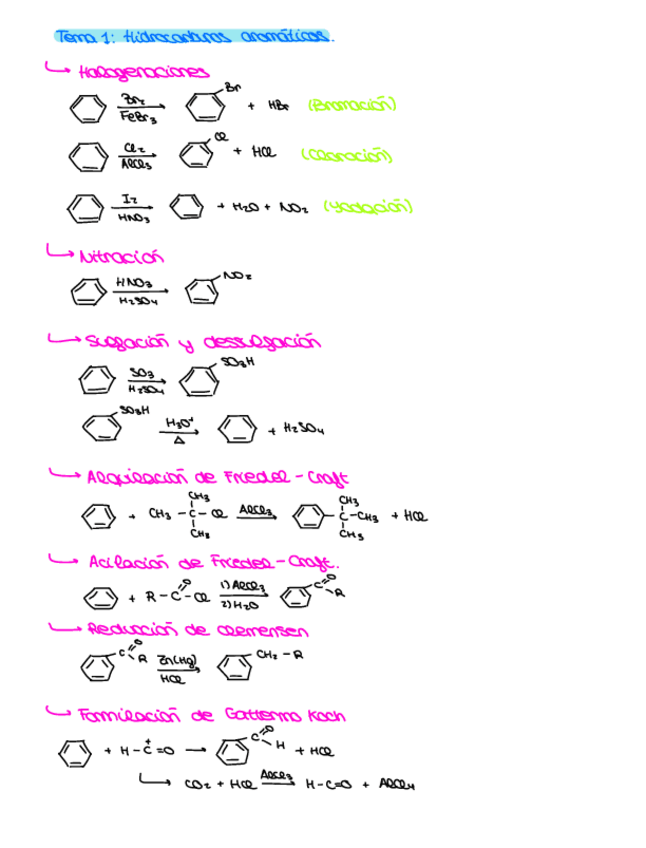 Tema 1: Hidrocarburos aromáticos.
Halogenaciones
Br₂ Br
FeBr₃ + HBr (Bromación)
Cl₂ Cl
AlCl₃ + HCl (Cloración)
I₂
HNO₃ + H₂O + NO₂ (Yodación)
Nitración
HNO₃ NO₂
H₂SO₄
Sulfonación y desulfonación
SO₃ SO₃H
H₂SO₄
SO₃H H₃O⁺
Δ + H₂SO₄
Alquilación de Friedel-Craft
CH₃ CH₃
+ CH₃ - C - Cl AlCl₃ C - CH₃ + HCl
CH₃ CH₃
Acilación de Friedel-Craft.
O 1) AlCl₃ O
+ R - C - Cl 2) H₂O C R
Reducción de Clemensen
O
C R Zn(Hg) CH₂ - R
HCl
Formilación de Gatterma Koch
+ O
+ H - C = O → C H + HCl
CO₂ + HCl AlCl₃ H - C = O + AlCl₄